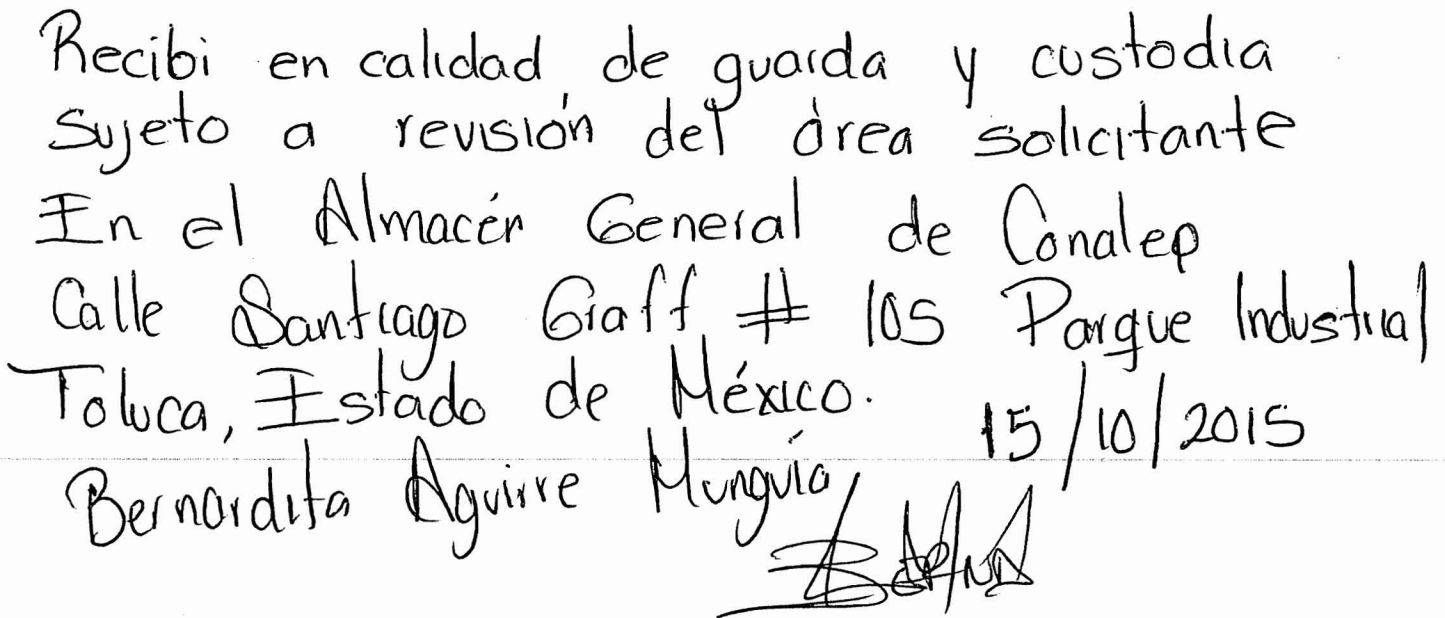 Recibi en calidad de guarda y custodia
Sujeto a revisión del área solicitante
En el Almacén General de Conalep
Calle Santiago Graff # 105 Parque Industrial
Toluca, Estado de México. 15/10/2015
Bernardita Aguirre Munguía